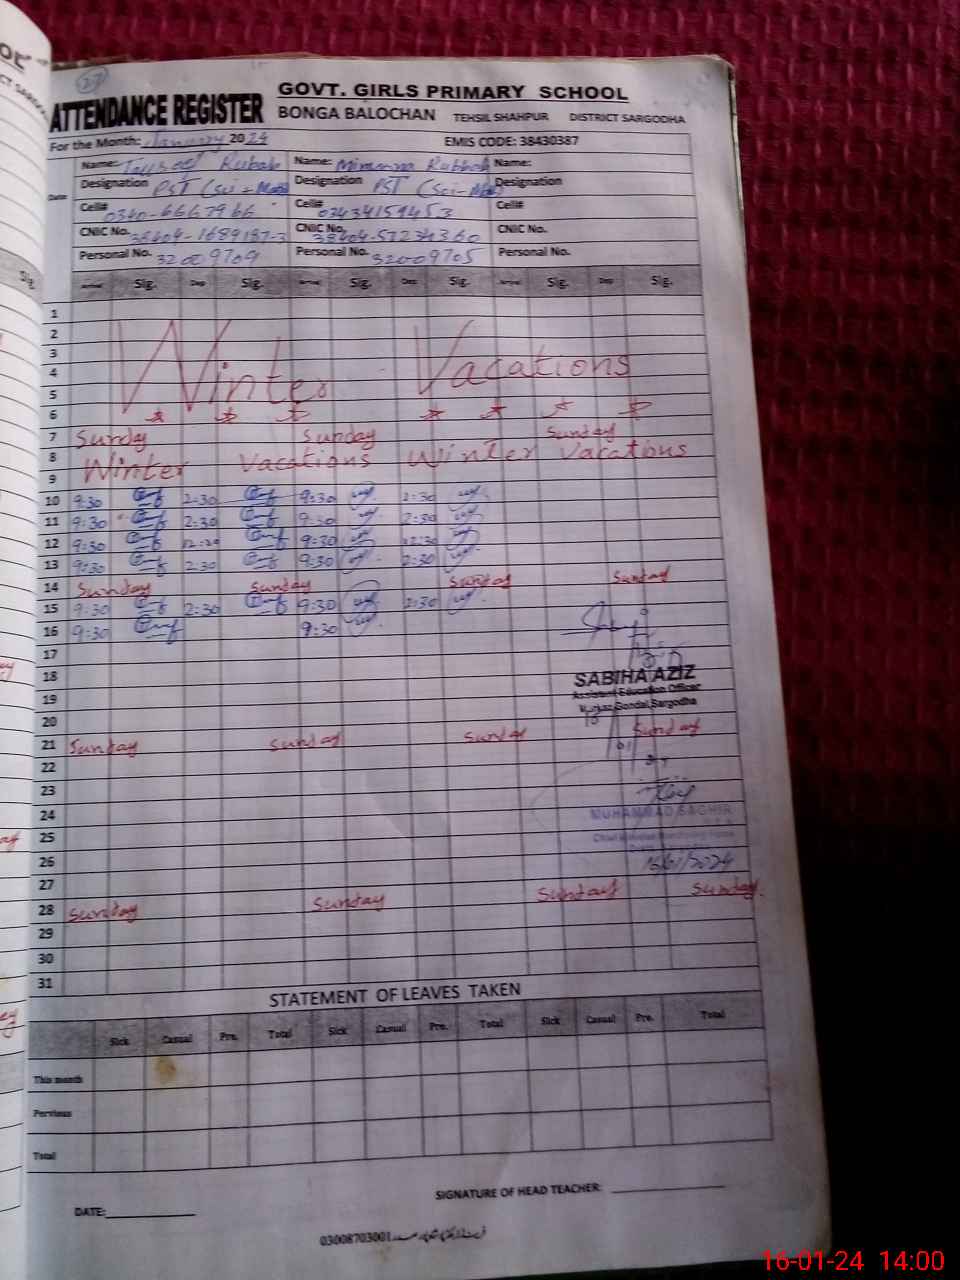 27
ATTENDANCE REGISTER
GOVT. GIRLS PRIMARY SCHOOL
BONGA BALOCHAN TEHSIL SHAHPUR DISTRICT SARGODHA
For the Month: January 2024 EMIS CODE: 38430387
Date
Name: Rubab Name: Name:
Designation PST (Sci - Math) Designation PST (Sci- Designation
Cell# Cell# 03434159453 Cell#
CNIC No. CNIC No. CNIC No.
Personal No. 32009709 Personal No. 32009705 Personal No.
Arrival Sig. Dep Sig. Arrival Sig. Dep Sig. Arrival Sig. Dep Sig.
1
2
3
4 Winter Vacations
5
6
7 Sunday Sunday Sunday
8
9 Winter Vacations Winter Vacations
10 9:30 2:30 9:30 2:30
11 9:30 2:30 9:30 2:30
12 9:30 9:30 12:30
13 9:30 2:30 9:30 2:30
14 Sunday Sunday Sunday Sunday
15 9:30 2:30 9:30 2:30
16 9:30 9:30
17
18
SABIHA AZIZ
19
Assistant Education Officer
Gondal Sargodha
20
21 Sunday Sunday Sunday Sunday
22
23
24
MUHAMMAD SAGHIR
25
26
16/01/2024
27
28 Sunday Sunday Sunday Sunday
29
30
31
STATEMENT OF LEAVES TAKEN
Sick Casual Pre. Total Sick Casual Pre. Total Sick Casual Pre. Total
This month
Pervious
Total
SIGNATURE OF HEAD TEACHER:
DATE:
03008703001
16-01-24 14:00